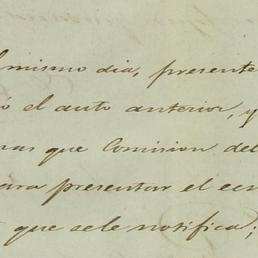 l mismo dia, presente
o el auto anterior, y
mas que Comision del
para presentar el
que se le notifica;